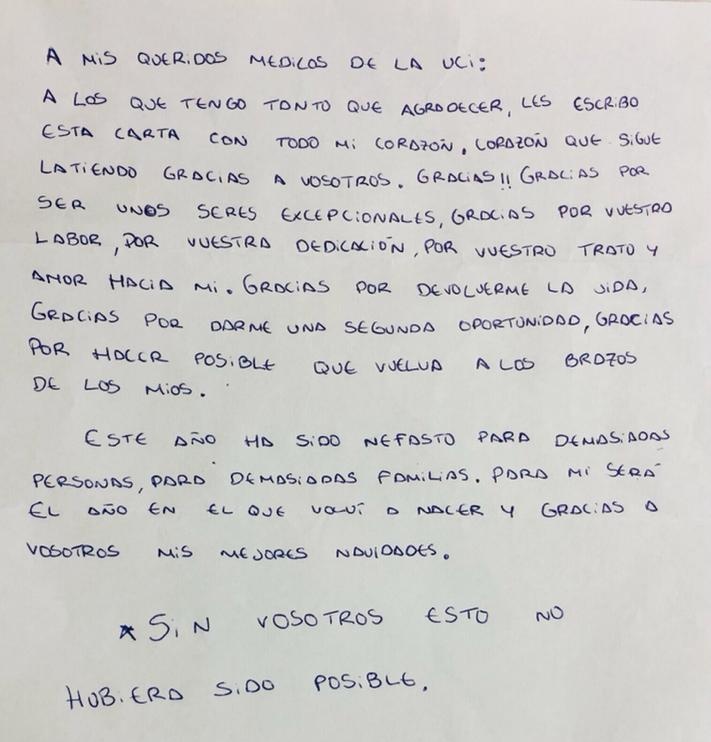 A MIS QUERIDOS MEDICOS DE LA UCI:
A LOS QUE TENGO TANTO QUE AGRADECER, LES ESCRIBO
ESTA CARTA CON TODO MI CORAZÓN, CORAZÓN QUE SIGUE
LATIENDO GRACIAS A VOSOTROS. GRACIAS!! GRACIAS POR
SER UNOS SERES EXCEPCIONALES, GRACIAS POR VUESTRO
LABOR, POR VUESTRA DEDICACIÓN, POR VUESTRO TRATO Y
AMOR HACIA MI. GRACIAS POR DEVOLVERME LA VIDA,
GRACIAS POR DARME UNA SEGUNDA OPORTUNIDAD, GRACIAS
POR HACER POSIBLE QUE VUELVA A LOS BRAZOS
DE LOS MIOS.
ESTE AÑO HA SIDO NEFASTO PARA DEMASIADAS
PERSONAS, PARA DEMASIADAS FAMILIAS. PARA MI SERÁ
EL AÑO EN EL QUE VOLVÍ A NACER Y GRACIAS A
VOSOTROS MIS MEJORES NAVIDADES.
* SIN VOSOTROS ESTO NO
HUBIERA SIDO POSIBLE.